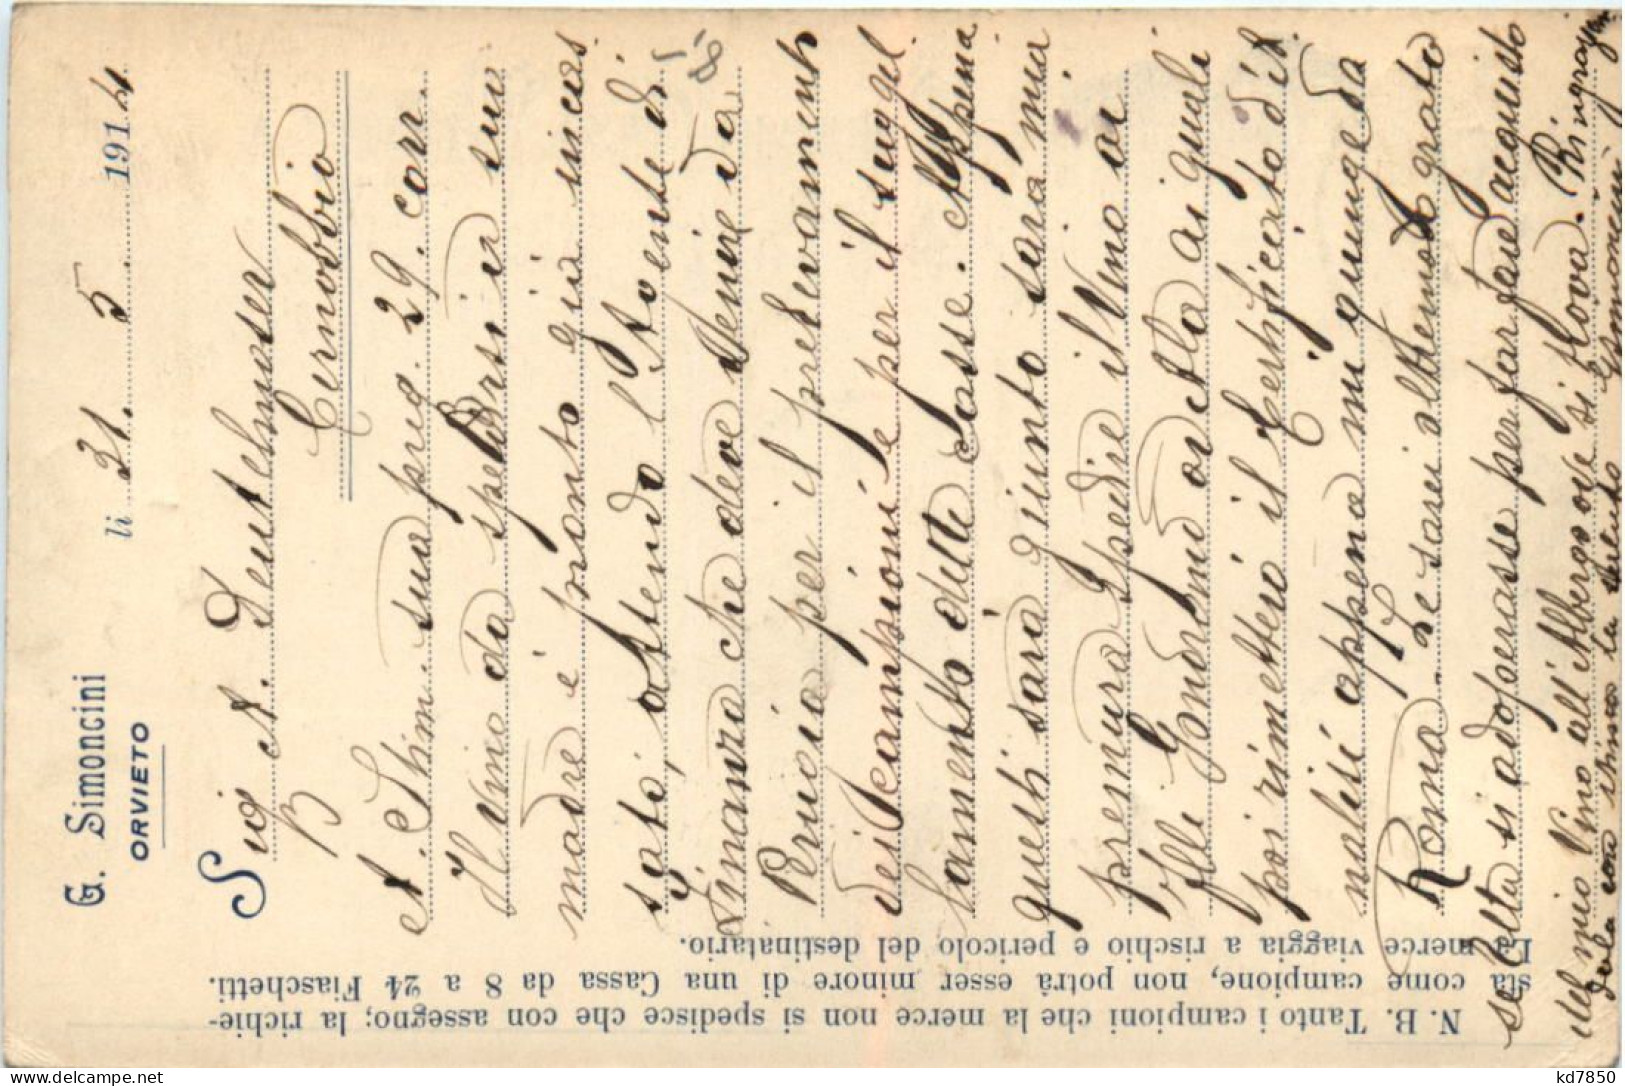 G. Simoncini
ORVIETO
li 31. 5. 1914
Sig A. Deutelmoser
Cernobbio
A Stim. sua preg. 29. corr.
Il vino da spedirsi a suo
madre è pronto già incas
sato, attendo l'Agente di
Finanza che deve venire da
Perugia per il prelevamento
dei campioni e per il suggel
lamento delle Casse. Appena
questi sarà giunto sarà mia
premura spedire il Vino ai
poi rimetterò il Certificato d'A
nalisi appena mi giungeda
Roma. Le sarei oltremodo grato
se Elta si adoperasse per far fare acquisto
del mio Vino all'Albergo ove si trova. Ringrazian
dola con stima la saluto Simoncini
N. B. Tanto i campioni che la merce non si spedisce che con assegno; la richie-
sta come campione, non potrà esser minore di una Cassa da 8 a 24 Fiaschetti.
La merce viaggia a rischio e pericolo del destinatario.
kd7850